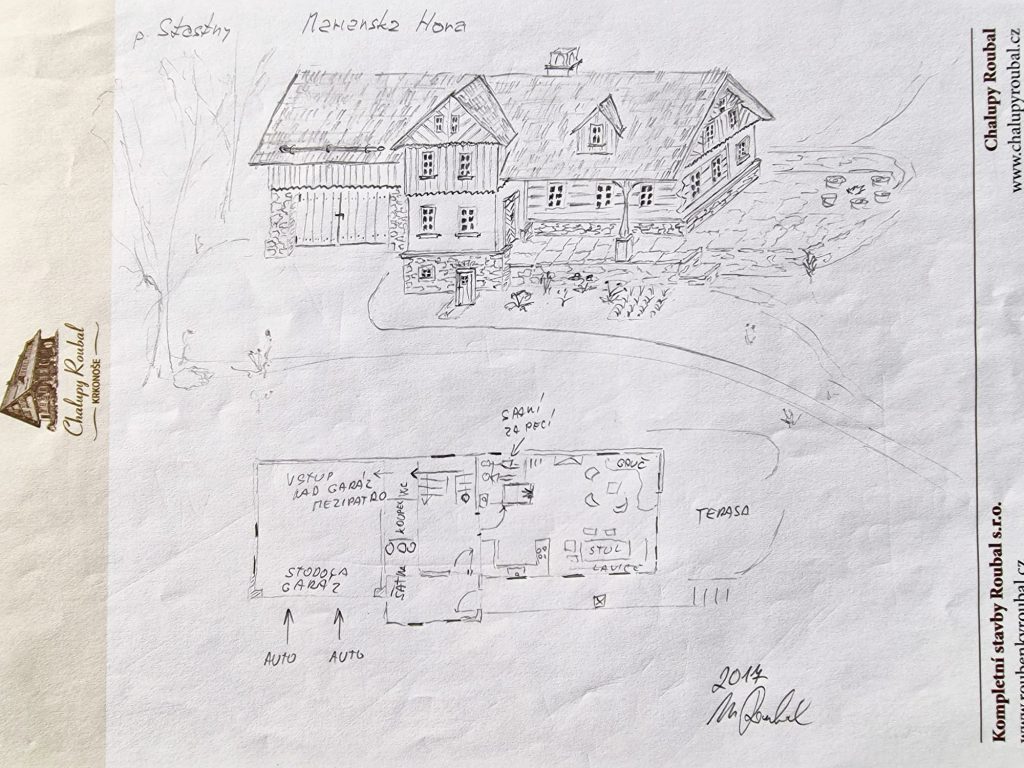 p. Stastny
Marianska Hora
SPANÍ
ZA PECÍ
VSTUP
NAD GARÁŽ
MEZIPATRO
WC
KOUPEL
GAUČ
TERASA
STŮL
LAVICE
STODOLA
GARÁŽ
ŠATNA
AUTO
AUTO
2017
Chalupy Roubal
KRKONOŠE
Kompletní stavby Roubal s.r.o.
www.roubenkyroubal.cz
Chalupy Roubal
www.chalupyroubal.cz